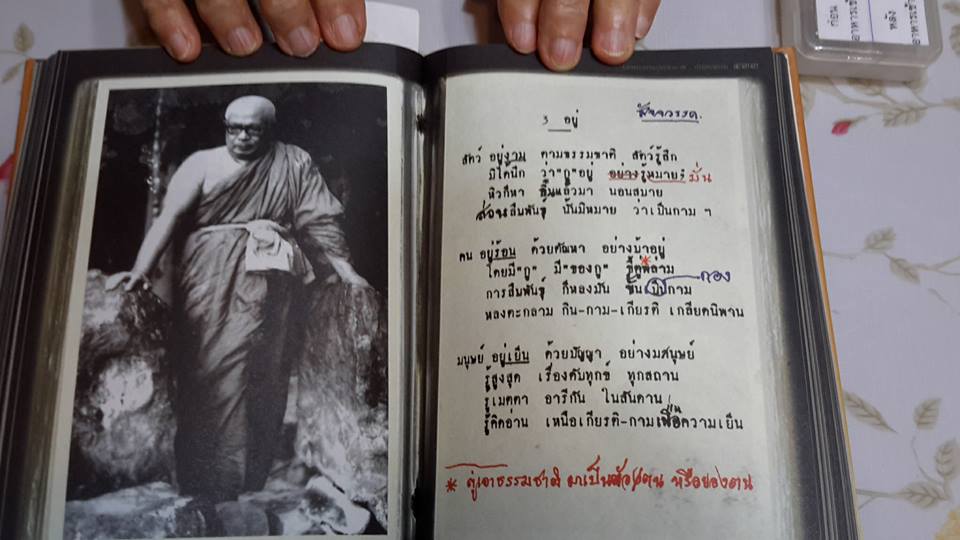 ก่อน
อาหารเช้า
หลัง
อาหารเช้า
3 อยู่
สัตว์ อยู่งาม ตามธรรมชาติ สัตว์รู้สึก
มิได้นึก ว่า"กู"อยู่ อย่างรู้หมาย; มั่น
หิวก็หา อิ่มแล้วมา นอนสบาย
ส่วนสืบพันธุ์ นั้นมิหมาย ว่าเป็นกาม ฯ
คน อยู่ร้อน ด้วยตัณหา อย่างบ้าอยู่
โดยมี"กู" มี"ของกู" *
การสืบพันธุ์ ก็หลงมัน ขึ้นเป็นกาม กอง
หลงตะกลาม กิน-กาม-เกียรติ เกลียดนิพาน
มนุษย์ อยู่เย็น ด้วยปัญญา อย่างมนุษย์
รู้สูงสุด เรื่องดับทุกข์ ทุกสถาน
รู้เมตตา อารีกัน ในสันดาน
รู้คิดอ่าน เหนือเกียรติ-กามเพื่อความเย็น
* ตู่เอาธรรมชาติ มาเป็นตัวตน หรือของตน